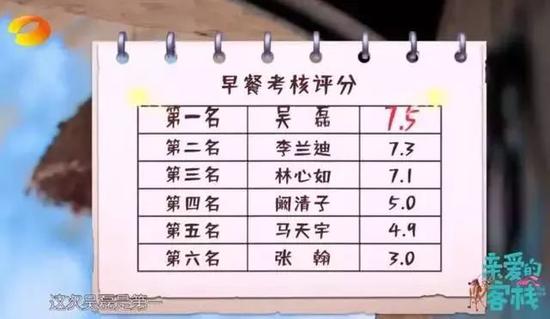 早餐考核评分
第一名 吴磊 7.5
第二名 李兰迪 7.3
第三名 林心如 7.1
第四名 阚清子 5.0
第五名 马天宇 4.9
第六名 张翰 3.0
亲爱的
客栈
这次吴磊是第一